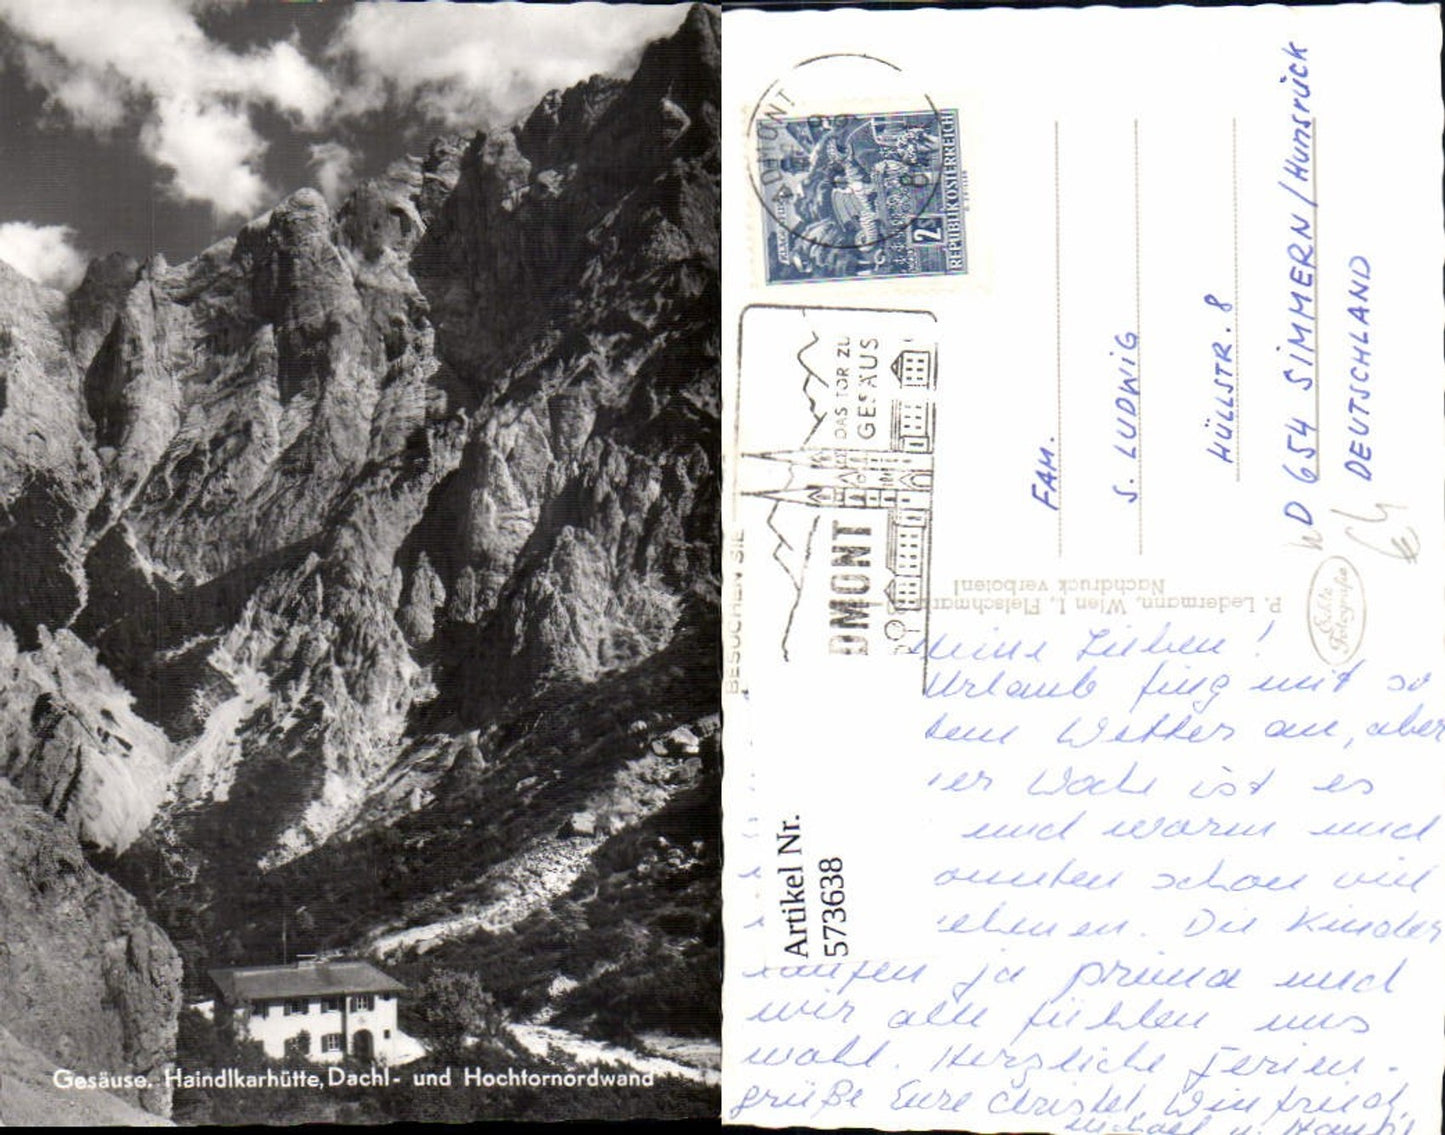 Gesäuse. Haindlkarhütte, Dachl- und Hochtornordwand
REPUBLIK ÖSTERREICH
2S
DMONT
BESUCHEN SIE
DMONT
DAS TOR ZU
GESÄUS
FAM.
S. LUDWIG
HÜLLSTR. 8
D 654 SIMMERN/Hunsrück
DEUTSCHLAND
P. Ledermann, Wien I, Fleischmar
Nachdruck verboten!
Echte
Fotografie
Artikel Nr.
573638
eine Lieben!
Urlaub fing mit so
tem Wetter an, aber
er Woche ist es
und warm und
onnten schon viel
ehmen. Die Kinder
laufen ja prima und
wir alle fühlen uns
wohl. Herzliche Ferien-
grüße Eure Christel, Winfried,
Michael u.